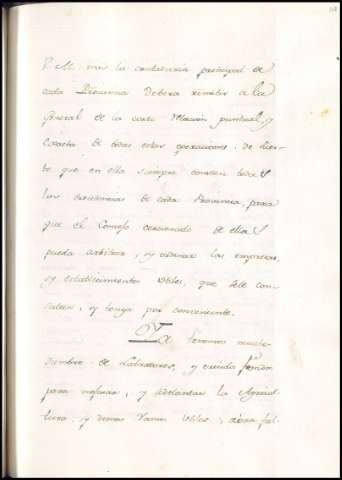 V. M. [...] la contaduria principal de
cada Provincia deberá remitir á la
General de la corte relacion puntual, y
exacta de todas estas operaciones, de suer-
te que en ella siempre consten todas
las existencias de cada Provincia, para
que el Consejo cerciorado de ellas
pueda arbitrar, y ordenar las empresas,
y establecimientos utiles, que se le con-
sulten, y tenga por conveniente.
Ya tenemos muche-
dumbre de Labradores, y crecido fondo
para mejorar, y adelantar la Agricul-
tura, y demas ramos utiles; ahora fal-